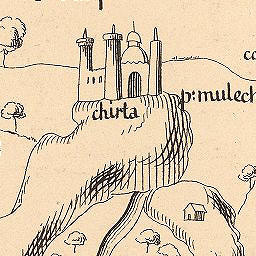 chirta
p: mulech